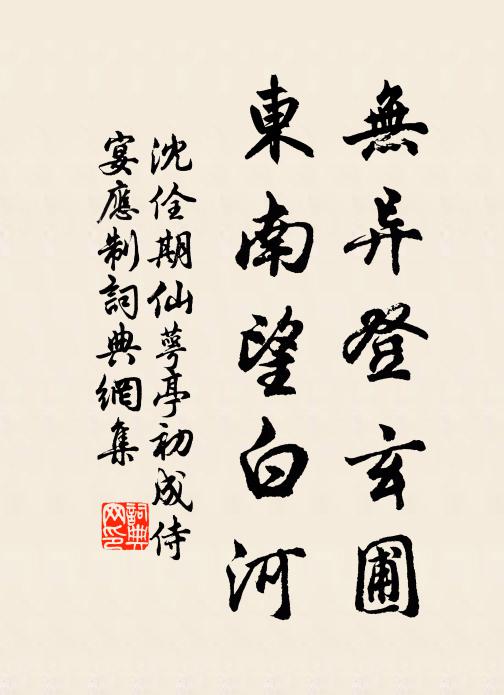 無异登玄圃
東南望白河
沈佺期仙萼亭初成侍
宴應制詞典網集
詞典网印